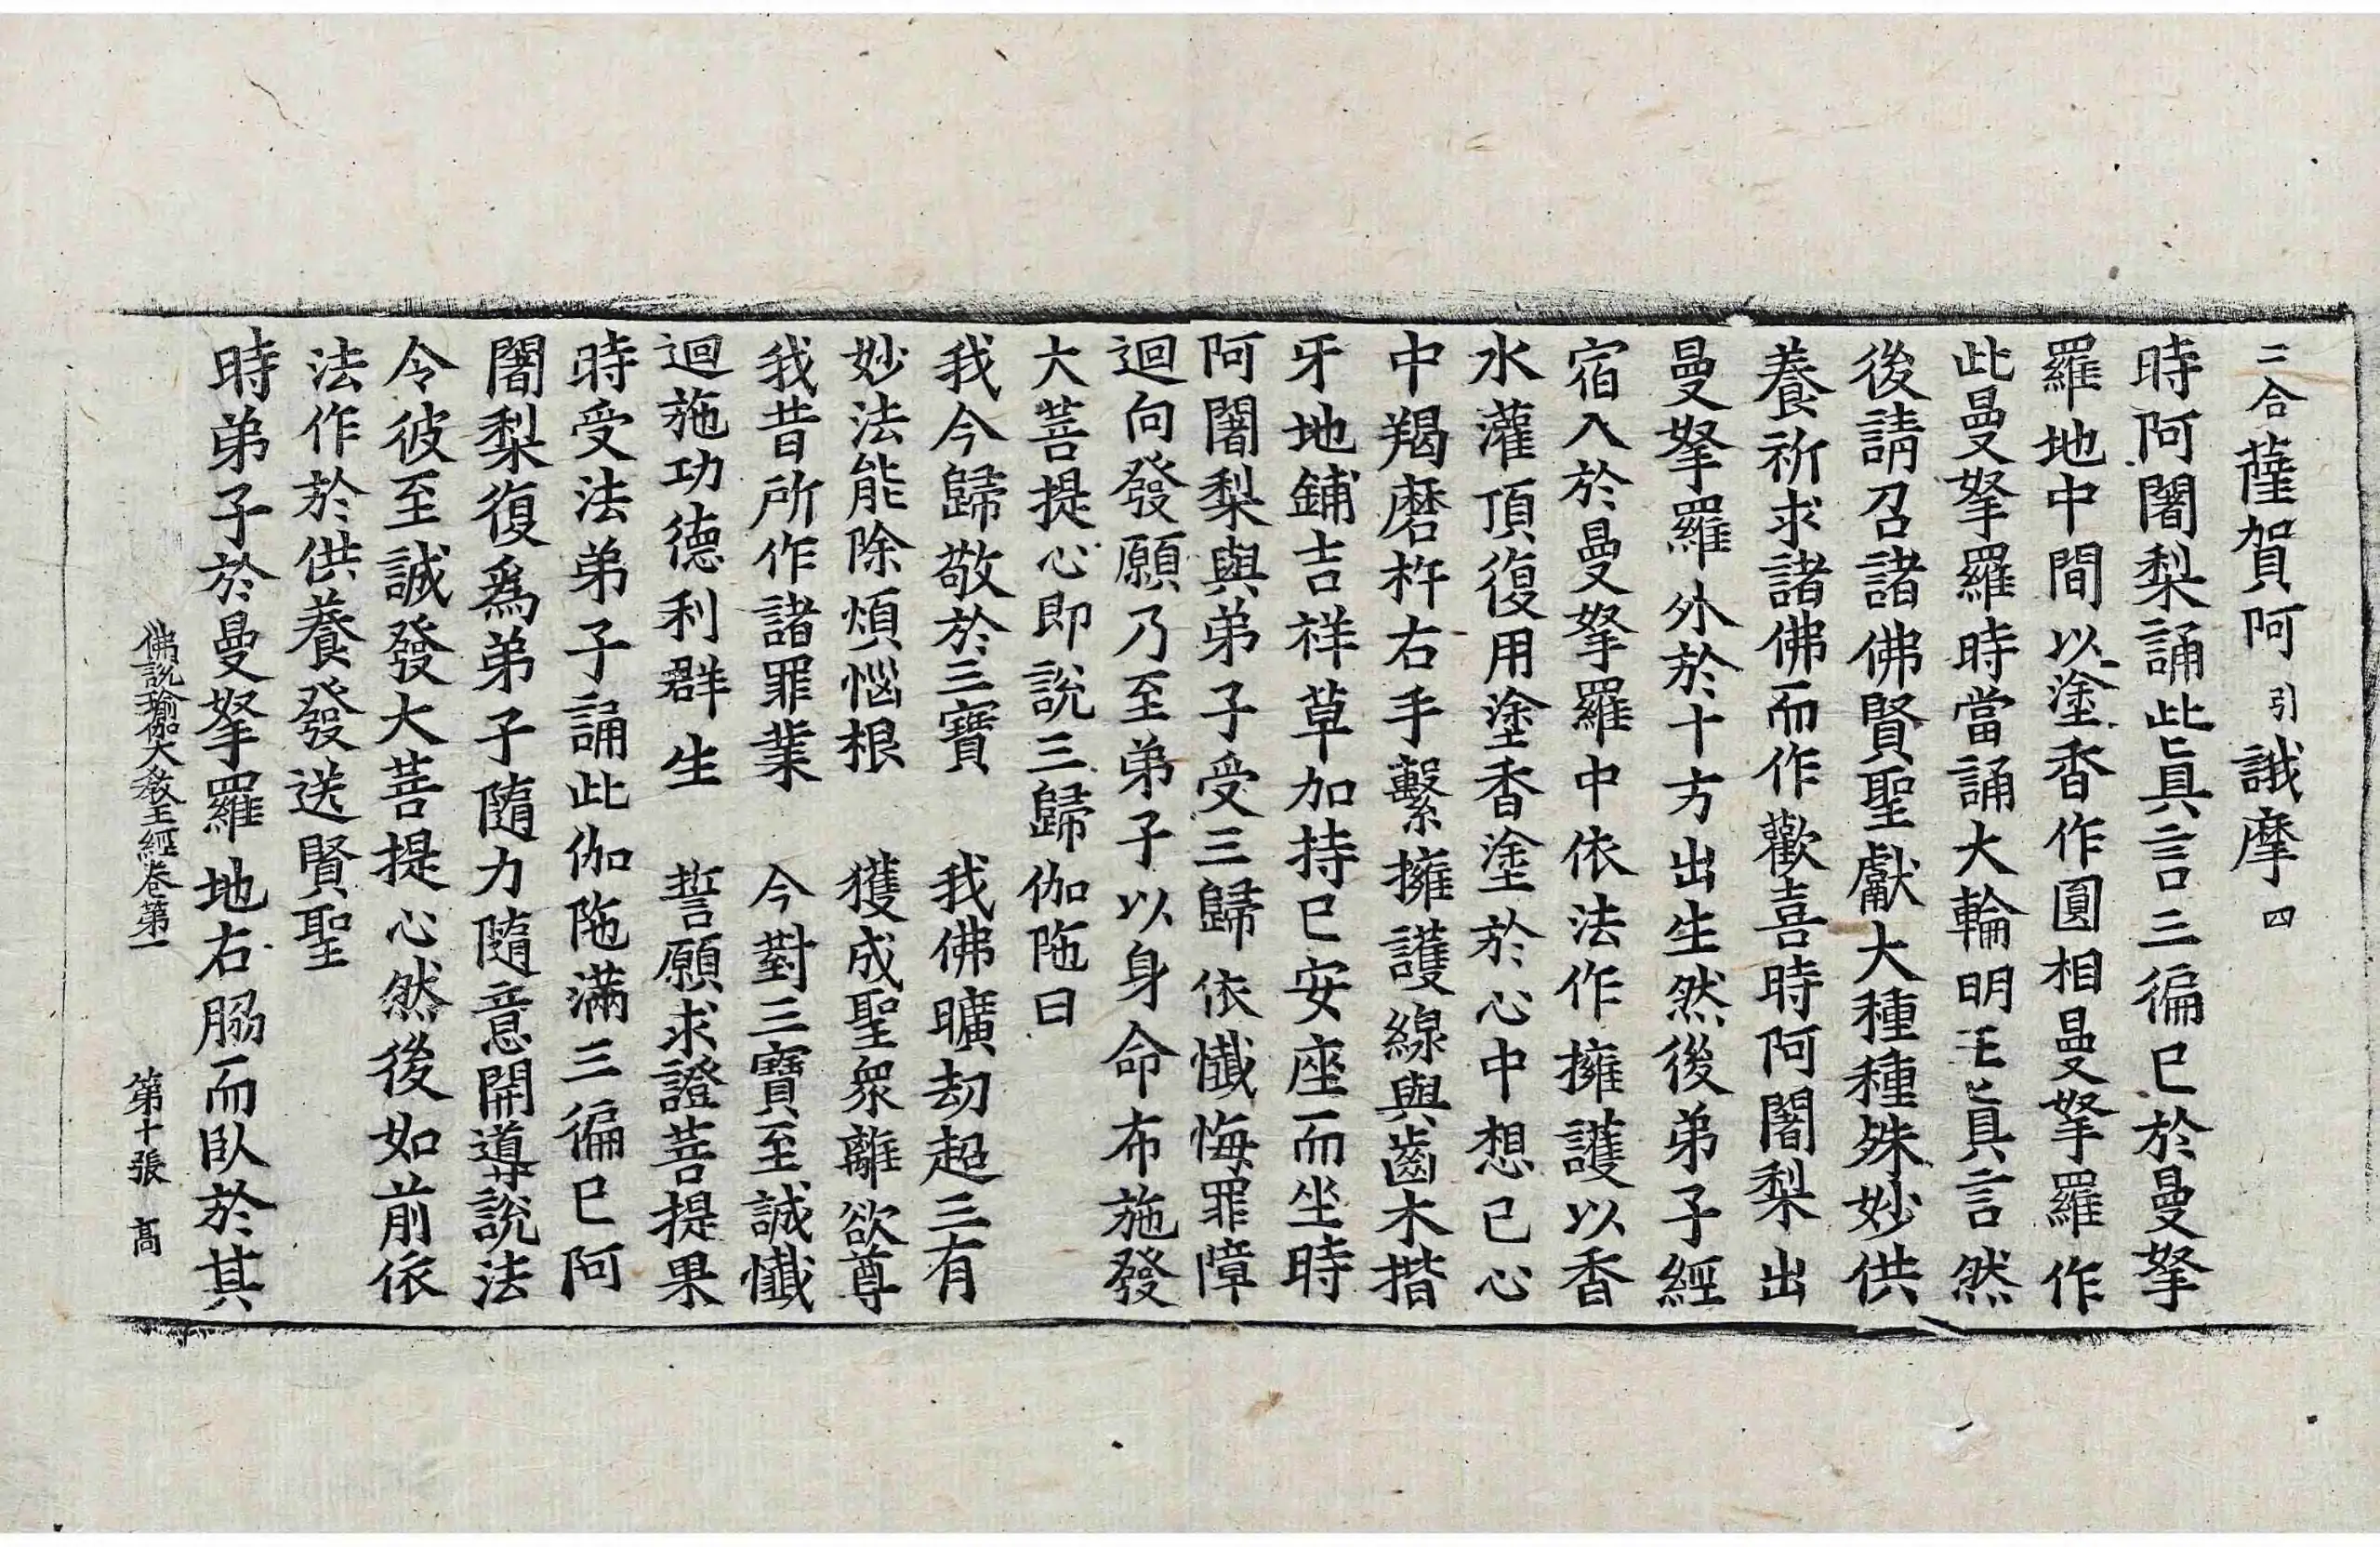 二合薩賀阿引誐摩四
時阿闍梨誦此眞言三徧已於曼拏
羅地中間以塗香作圓相曼拏羅作
此曼拏羅時當誦大輪明王眞言然
後請召諸佛賢聖獻大種種殊妙供
養祈求諸佛而作歡喜時阿闍梨出
曼拏羅外於十方出生然後弟子經
宿入於曼拏羅中依法作擁護以香
水灌頂復用塗香塗於心中想己心
中羯磨杵右手繫擁護線與齒木揩
牙地鋪吉祥草加持已安座而坐時
阿闍梨與弟子受三歸依懺悔罪障
迴向發願乃至弟子以身命布施發
大菩提心即說三歸伽陁曰
我今歸敬於三寶　我佛曠劫超三有
妙法能除煩惱根　獲成聖衆離欲尊
我昔所作諸罪業　今對三寶至誠懺
迴施功德利群生　誓願求證菩提果
時受法弟子誦此伽陁滿三徧已阿
闍梨復爲弟子隨力隨意開導說法
令彼至誠發大菩提心然後如前依
法作於供養發送賢聖
時弟子於曼拏羅地右脇而臥於其
佛說瑜伽大教王經卷第一　第十張　髙